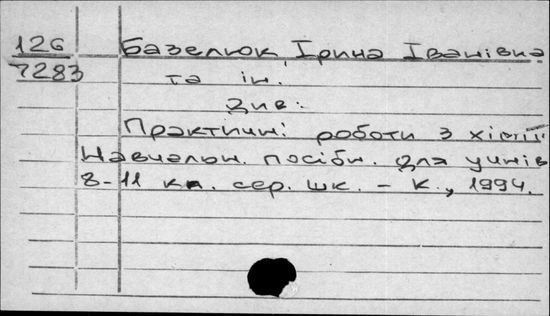 126
7283
Базелюк Ірина Іванівна
та ін.
Див:
Практичні роботи з хімії:
Навчальн. посібн. для учнів
8-11 кл. сер. шк. - К., 1994.